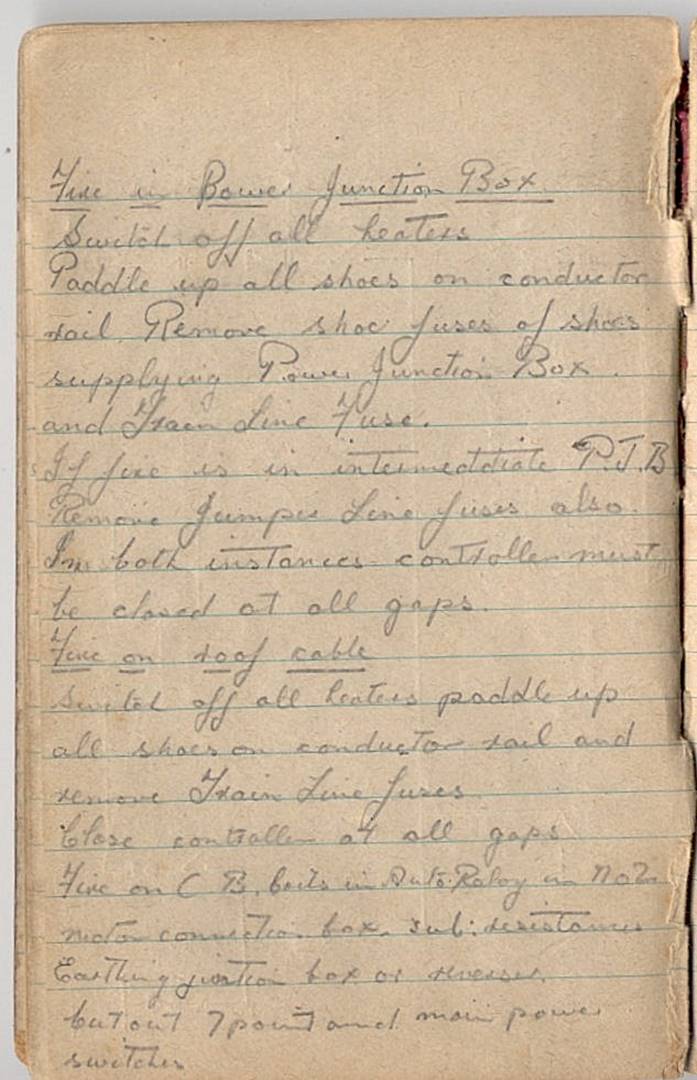 Fire in Power Junction Box.
Switch off all heaters
Paddle up all shoes on conductor
rail. Remove shoe fuses of shoes
supplying Power Junction Box.
and Train Line Fuse.
If fire is in intermeddiate P.J.B
Remove Jumper Line fuses also.
In both instances controller must
be closed at all gaps.
Fire on roof cable
Switch off all heaters paddle up
all shoes on conductor rail and
remove Train Line fuses
Close controller at all gaps
Fire on C B. in Auto: Relay in No 2
motor connection box. sub: resistances
Earthing juntion box or reverser.
Cut out 7 point and main power
switches